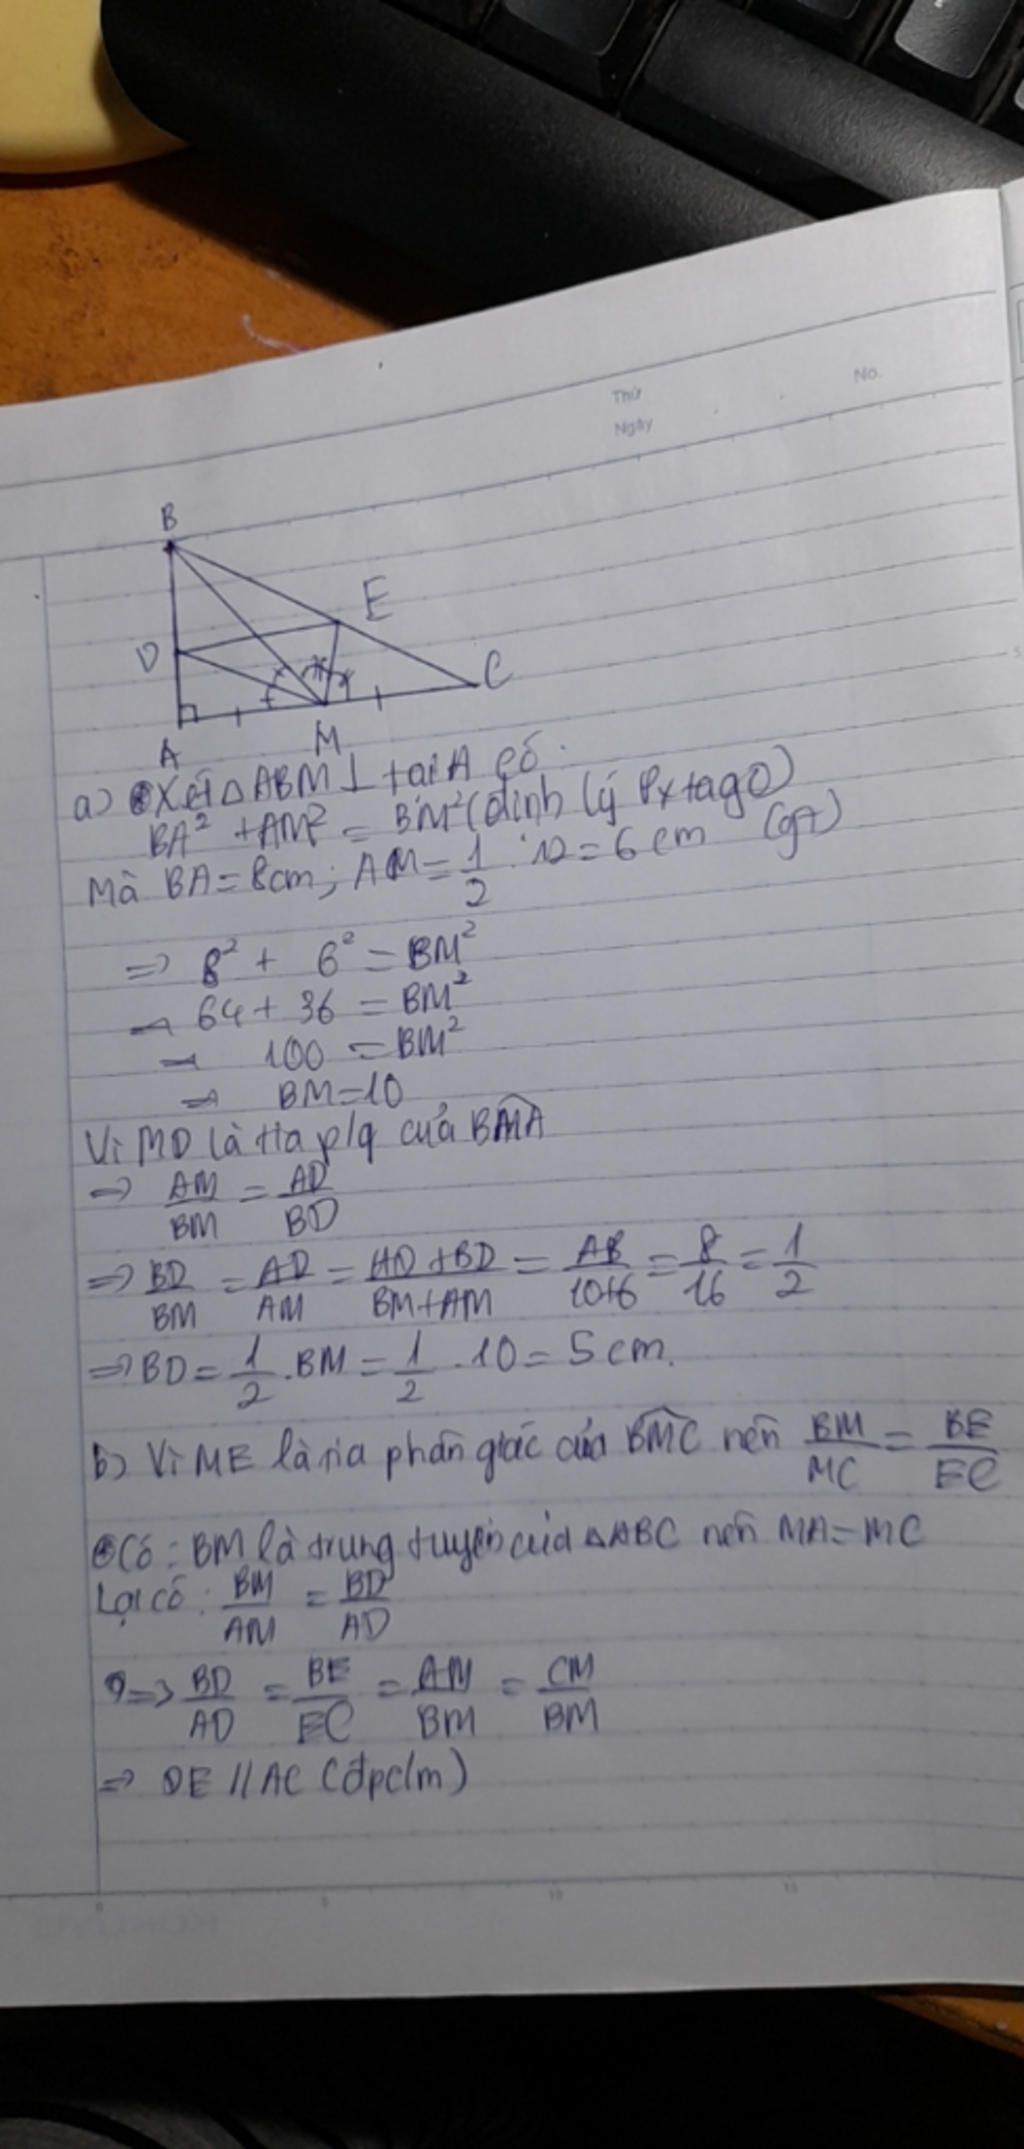 Thứ
No.
Ngày
B
E
D
C
A
M
a) Xét △ABM ⊥ tại A có
BA² + AM² = BM² (định lý Pytago)
Mà BA = 8cm; AM = 1/2 . 12 = 6cm (gt)
=> 8² + 6² = BM²
=> 64 + 36 = BM²
=> 100 = BM²
=> BM = 10
Vì MD là tia p/g của BMA
=> AM/BM = AD/BD
=> BD/BM = AD/AM = AD+BD/BM+AM = AB/10+6 = 8/16 = 1/2
=> BD = 1/2 . BM = 1/2 . 10 = 5cm.
b) Vì ME là tia phân giác của BMC nên BM/MC = BE/EC
Có: BM là trung tuyến của △ABC nên MA = MC
Lại có: BM/AM = BD/AD
=> BD/AD = BE/EC = AM/BM = CM/BM
=> DE // AC (đpc/m)
5
10
15